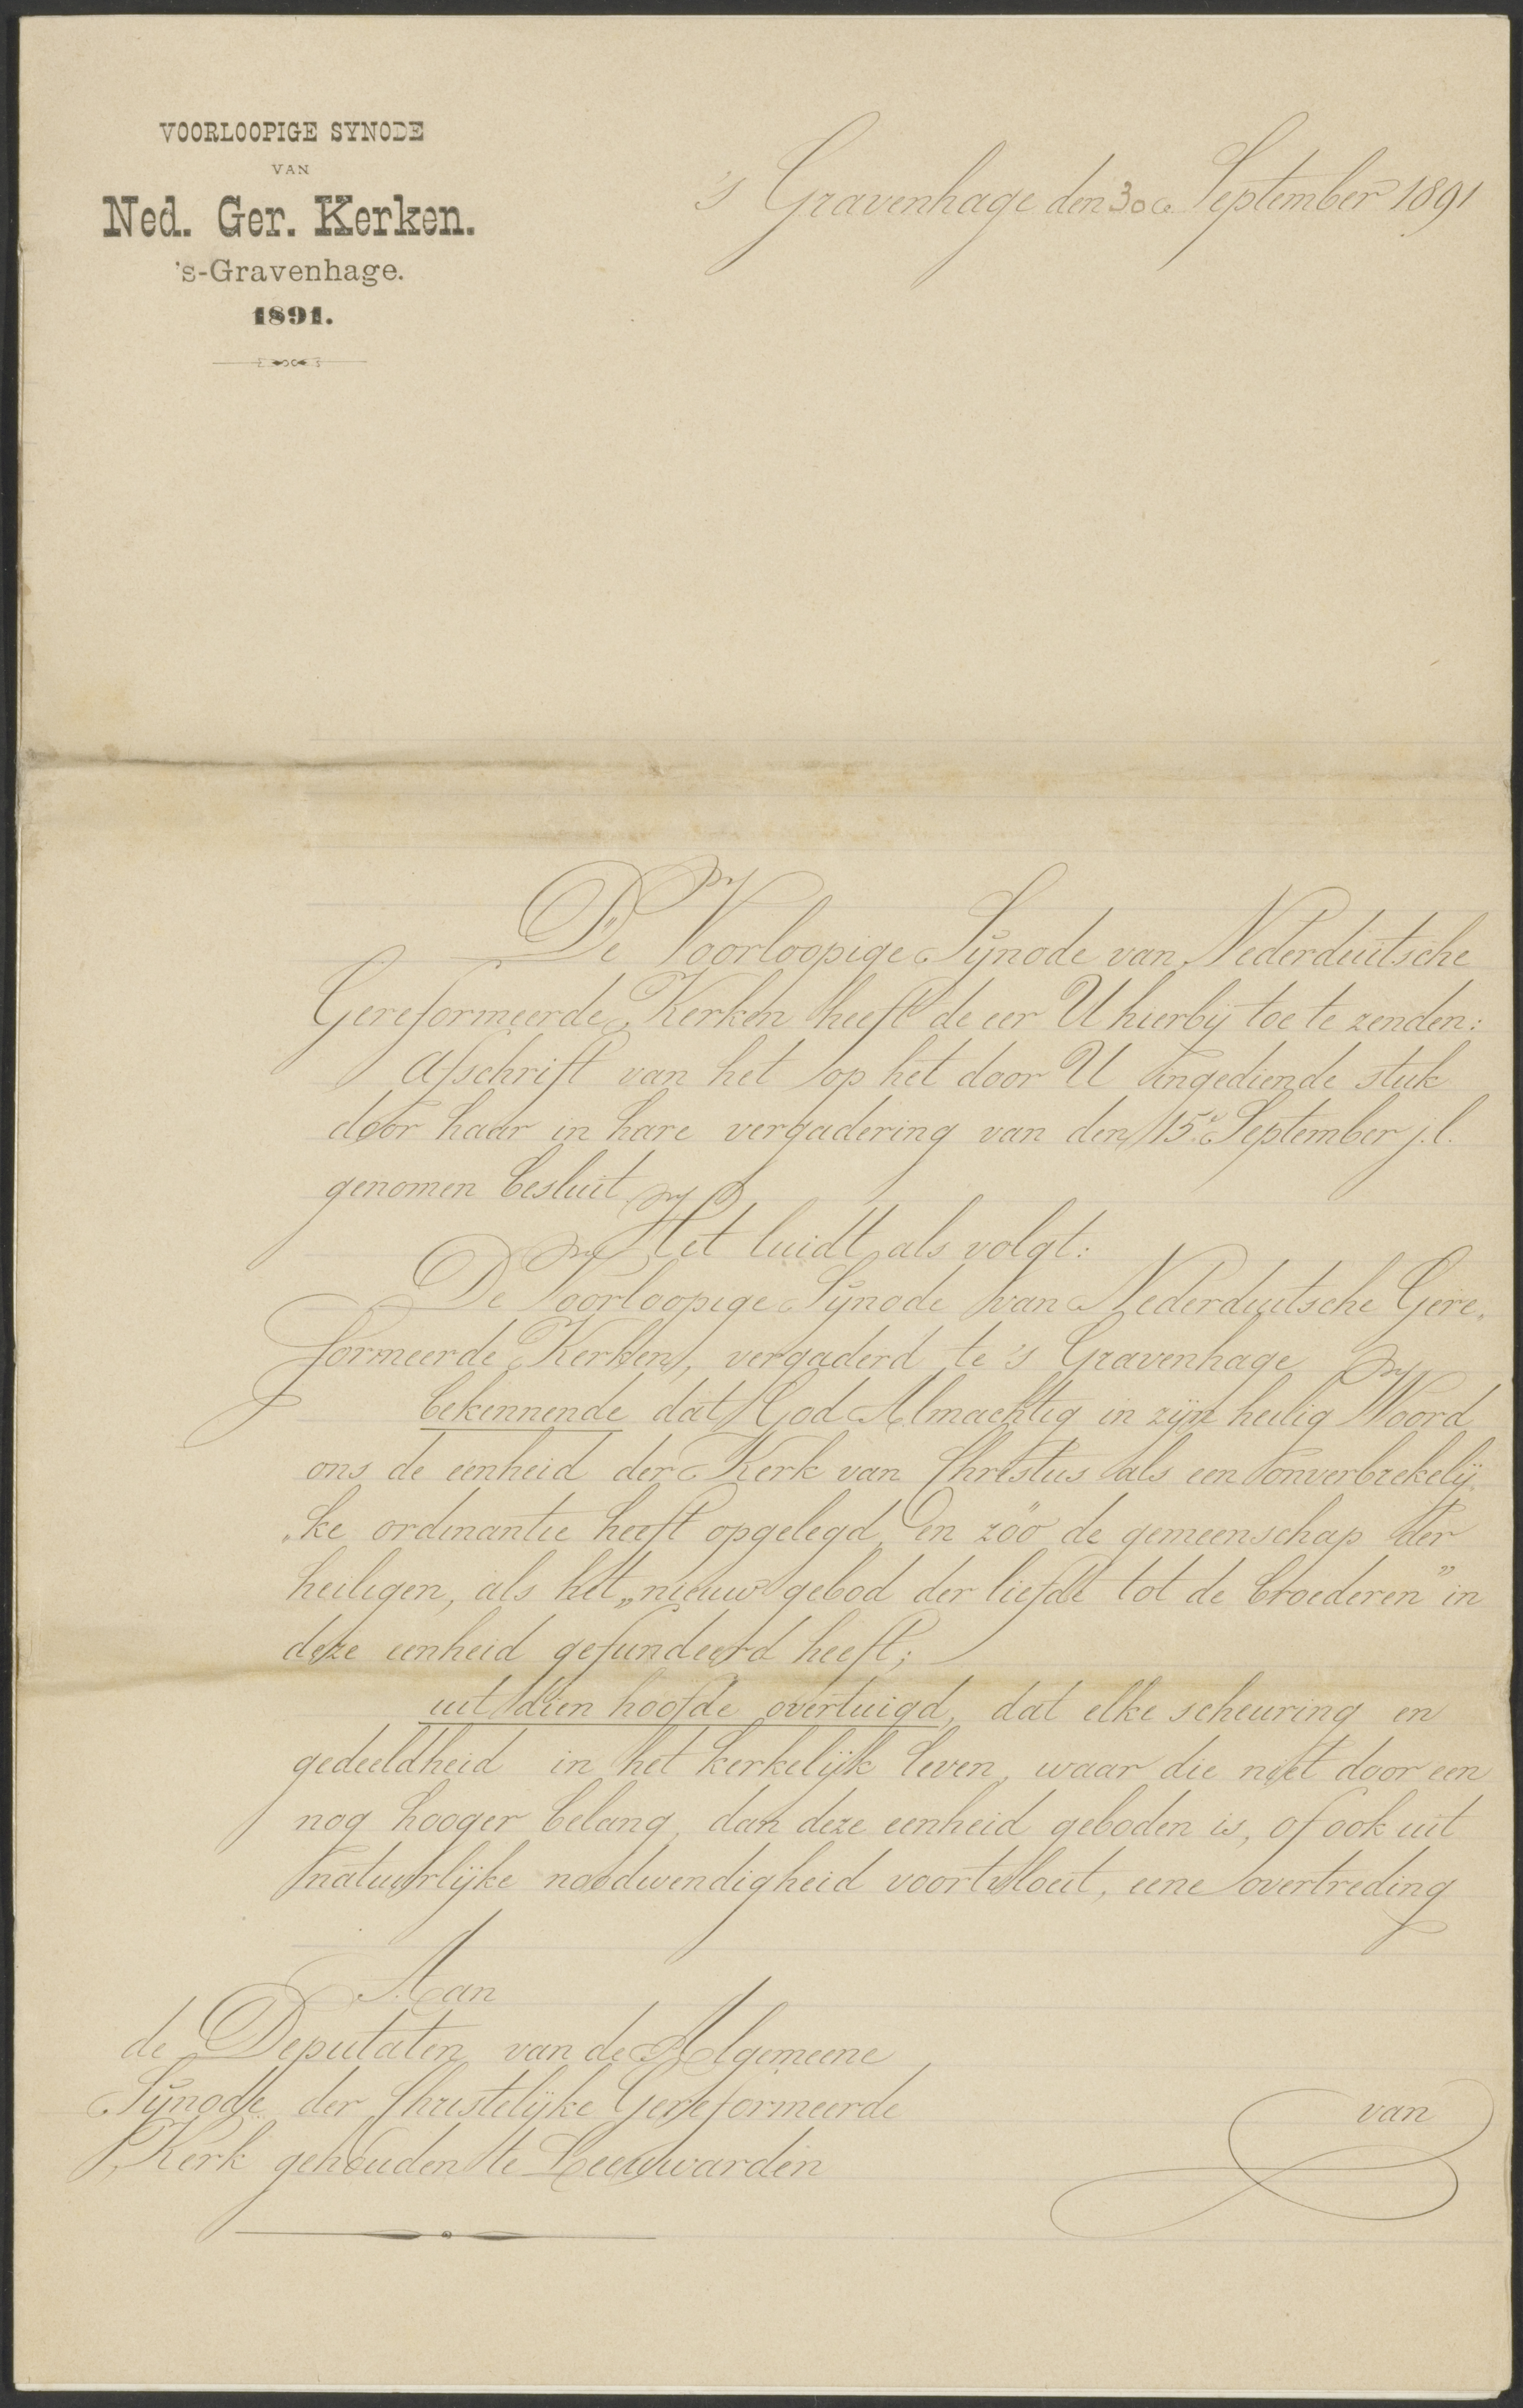 VOORLOOPIGE SYNODE
VAN
Ned. Ger. Kerken.
's-Gravenhage.
1891.
's Gravenhage den 30 September 1891
De Voorloopige Synode van Nederduitsche
Gereformeerde Kerken heeft de eer U hierbij toe te zenden:
Afschrift van het op het door U ingediende stuk
door haar in hare vergadering van den 15e September j.l.
genomen besluit
Het luidt als volgt:
De Voorloopige Synode van Nederduitsche Gere„
formeerde Kerken, vergaderd te 's Gravenhage
bekennende dat God Almachtig in zijn heilig Woord
ons de eenheid der Kerk van Christus als een onverbrekelij„
„ke ordinantie heeft opgelegd, en zóó de gemeenschap der
heiligen, als het „nieuw gebod der liefde tot de broederen” in
deze eenheid gefundeerd heeft;
uit dien hoofde overtuigd, dat elke scheuring en
gedeeldheid in het kerkelijk leven, waar die niet door een
nog hooger belang, dan deze eenheid geboden is, of ook uit
natuurlijke noodwendigheid voortvloeit, eene overtreding
Aan
de Deputaten van de Algemeene
Synode der Christelijke Gereformeerde
Kerk gehouden te Leeuwarden
van